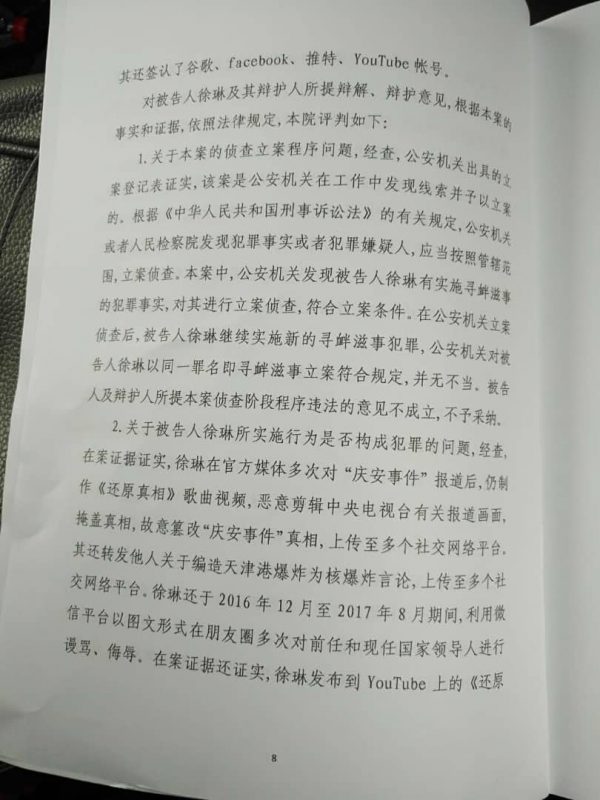 其还签认了谷歌、facebook、推特、YouTube 帐号。
对被告人徐琳及其辩护人所提辩解、辩护意见,根据本案的
事实和证据,依照法律规定,本院评判如下:
1.关于本案的侦查立案程序问题,经查,公安机关出具的立
案登记表证实,该案是公安机关在工作中发现线索并予以立案
的。根据《中华人民共和国刑事诉讼法》的有关规定,公安机关
或者人民检察院发现犯罪事实或者犯罪嫌疑人,应当按照管辖范
围,立案侦查。本案中,公安机关发现被告人徐琳有实施寻衅滋事
的犯罪事实,对其进行立案侦查,符合立案条件。在公安机关立案
侦查后,被告人徐琳继续实施新的寻衅滋事犯罪,公安机关对被
告人徐琳以同一罪名即寻衅滋事立案符合规定,并无不当。被告
人及辩护人所提本案侦查阶段程序违法的意见不成立,不予采纳。
2.关于被告人徐琳所实施行为是否构成犯罪的问题,经查,
在案证据证实,徐琳在官方媒体多次对“庆安事件”报道后,仍制
作《还原真相》歌曲视频,恶意剪辑中央电视台有关报道画面,
掩盖真相,故意篡改“庆安事件”真相,上传至多个社交网络平台。
其还转发他人关于编造天津港爆炸为核爆炸言论,上传至多个社
交网络平台。徐琳还于 2016 年 12 月至 2017 年 8 月期间,利用微
信平台以图文形式在朋友圈多次对前任和现任国家领导人进行
谩骂、侮辱。在案证据还证实,徐琳发布到 YouTube 上的《还原
8